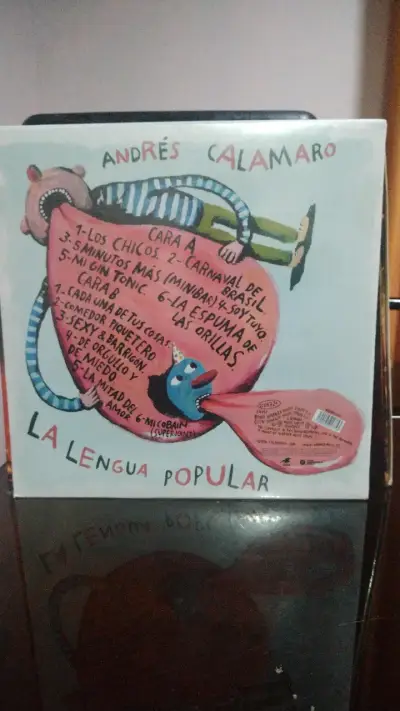 ANDRÉS CALAMARO
CARA A
1-LOS CHICOS. 2-CARNAVAL DE BRASIL
3-5 MINUTOS MÁS (MINIBAR) 4-SOY TUYO.
5-MI GIN TONIC. 6-LA ESPUMA DE LAS ORILLAS.
CARA B
1-CADA UNA DE TUS COSAS
2-COMEDOR PIQUETERO
3-SEXY & BARRIGON.
4-DE ORGULLO Y DE MIEDO
5-LA MITAD DEL AMOR 6-MI COBAIN
(SUPERJOINT)
LA LENGUA POPULAR